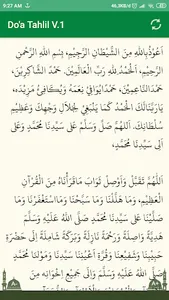 9:27 AM
46.3KB/s
Do'a Tahlil V.1
اَعُوْذُ بِاللهِ مِنَ الشَّيْطَانِ الرَّجِيْمِ، بِسْمِ اللهِ الرَّحْمٰنِ
الرَّحِيْمِ، اَلْحَمْدُ لِلّٰهِ رَبِّ الْعَالَمِيْنَ، حَمْدَ الشَّاكِرِيْنَ،
حَمْدَ النَّاعِمِيْنَ، حَمْدًا يُوَافِيْ نِعَمَهُ وَيُكَافِئُ مَزِيْدَهُ،
يَا رَبَّنَا لَكَ الْحَمْدُ كَمَا يَنْبَغِيْ لِجَلَالِ وَجْهِكَ وَعَظِيْمِ
سُلْطَانِكَ. اَللّٰهُمَّ صَلِّ وَسَلِّمْ عَلَى سَيِّدِنَا مُحَمَّدٍ وَعَلَى
اٰلِ سَيِّدِنَا مُحَمَّدٍ
اَللّٰهُمَّ تَقَبَّلْ وَاَوْصِلْ ثَوَابَ مَاقَرَأْنَاهُ مِنَ الْقُرْآنِ
الْعَظِيْمِ، وَمَا هَلَّلْنَا وَمَا سَبَّحْنَا وَمَااسْتَغْفَرْنَا وَمَا
صَلَّيْنَا عَلَى سَيِّدِنَا مُحَمَّدٍ صَلَّى اللهُ عَلَيْهِ وَسَلَّمَ
هَدِيَّةً وَاصِلَةً وَرَحْمَةً نَازِلَةً وَبَرَكَةً شَامِلَةً إِلَى حَضْرَةِ
حَبِيْبِنَا وَشَفِيْعِنَا وَقُرَّةِ أَعْيُنِنَا سَيِّدِنَا وَمَوْلَانَا مُحَمَّدٍ
صَلَّى اللهُ عَلَيْهِ وَسَلَّمَ وَإِلَى جَمِيْعِ إِخْوَانِهِ مِنَ